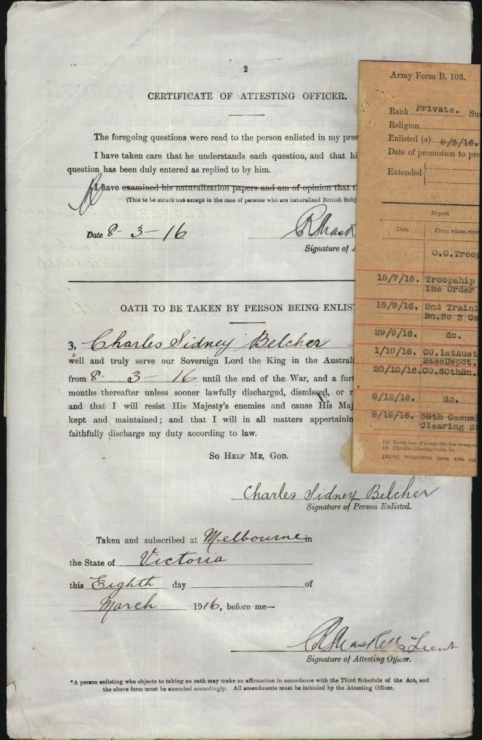 2
CERTIFICATE OF ATTESTING OFFICER.
The foregoing questions were read to the person enlisted in my pres
I have taken care that he understands each question, and that hi
question has been duly entered as replied to by him.
I have examined his naturalization papers and am of opinion that t
(This to be struck out except in the case of persons who are naturalized British Subj
Date 8-3-16
Signature of
OATH TO BE TAKEN BY PERSON BEING ENLIS
3. Charles Sidney Belcher
well and truly serve our Sovereign Lord the King in the Australi
from 8-3-16 until the end of the War, and a fur
months thereafter unless sooner lawfully discharged, dismissed, or r
and that I will resist His Majesty's enemies and cause His Maj
kept and maintained; and that I will in all matters appertainin
faithfully discharge my duty according to law.
SO HELP ME, GOD.
Charles Sidney Belcher
Signature of Person Enlisted.
Taken and subscribed at Melbourne in
the State of Victoria
this Eighth day of
March 1916, before me—
Lieut
Signature of Attesting Officer.
*A person enlisting who objects to taking an oath may make an affirmation in accordance with the Third Schedule of the Act, and
the above form must be amended accordingly. All amendments must be initialed by the Attesting Officer.
Army Form B. 103.
Rank Private. Su
Religion
Enlisted (a) 8/3/16.
Date of promotion to pre
Extended
Report
Date From whom recei
O.C.Troop
18/7/16. Troopship
Ine Order
15/9/16. 2nd Traini
Bn.No 3 Ca
29/9/16. do.
1/10/16. CO.1stAust
BaseDepot.
20/10/16. CO.60thBn.
8/12/16. do.
8/12/16. Casual
Clearing S